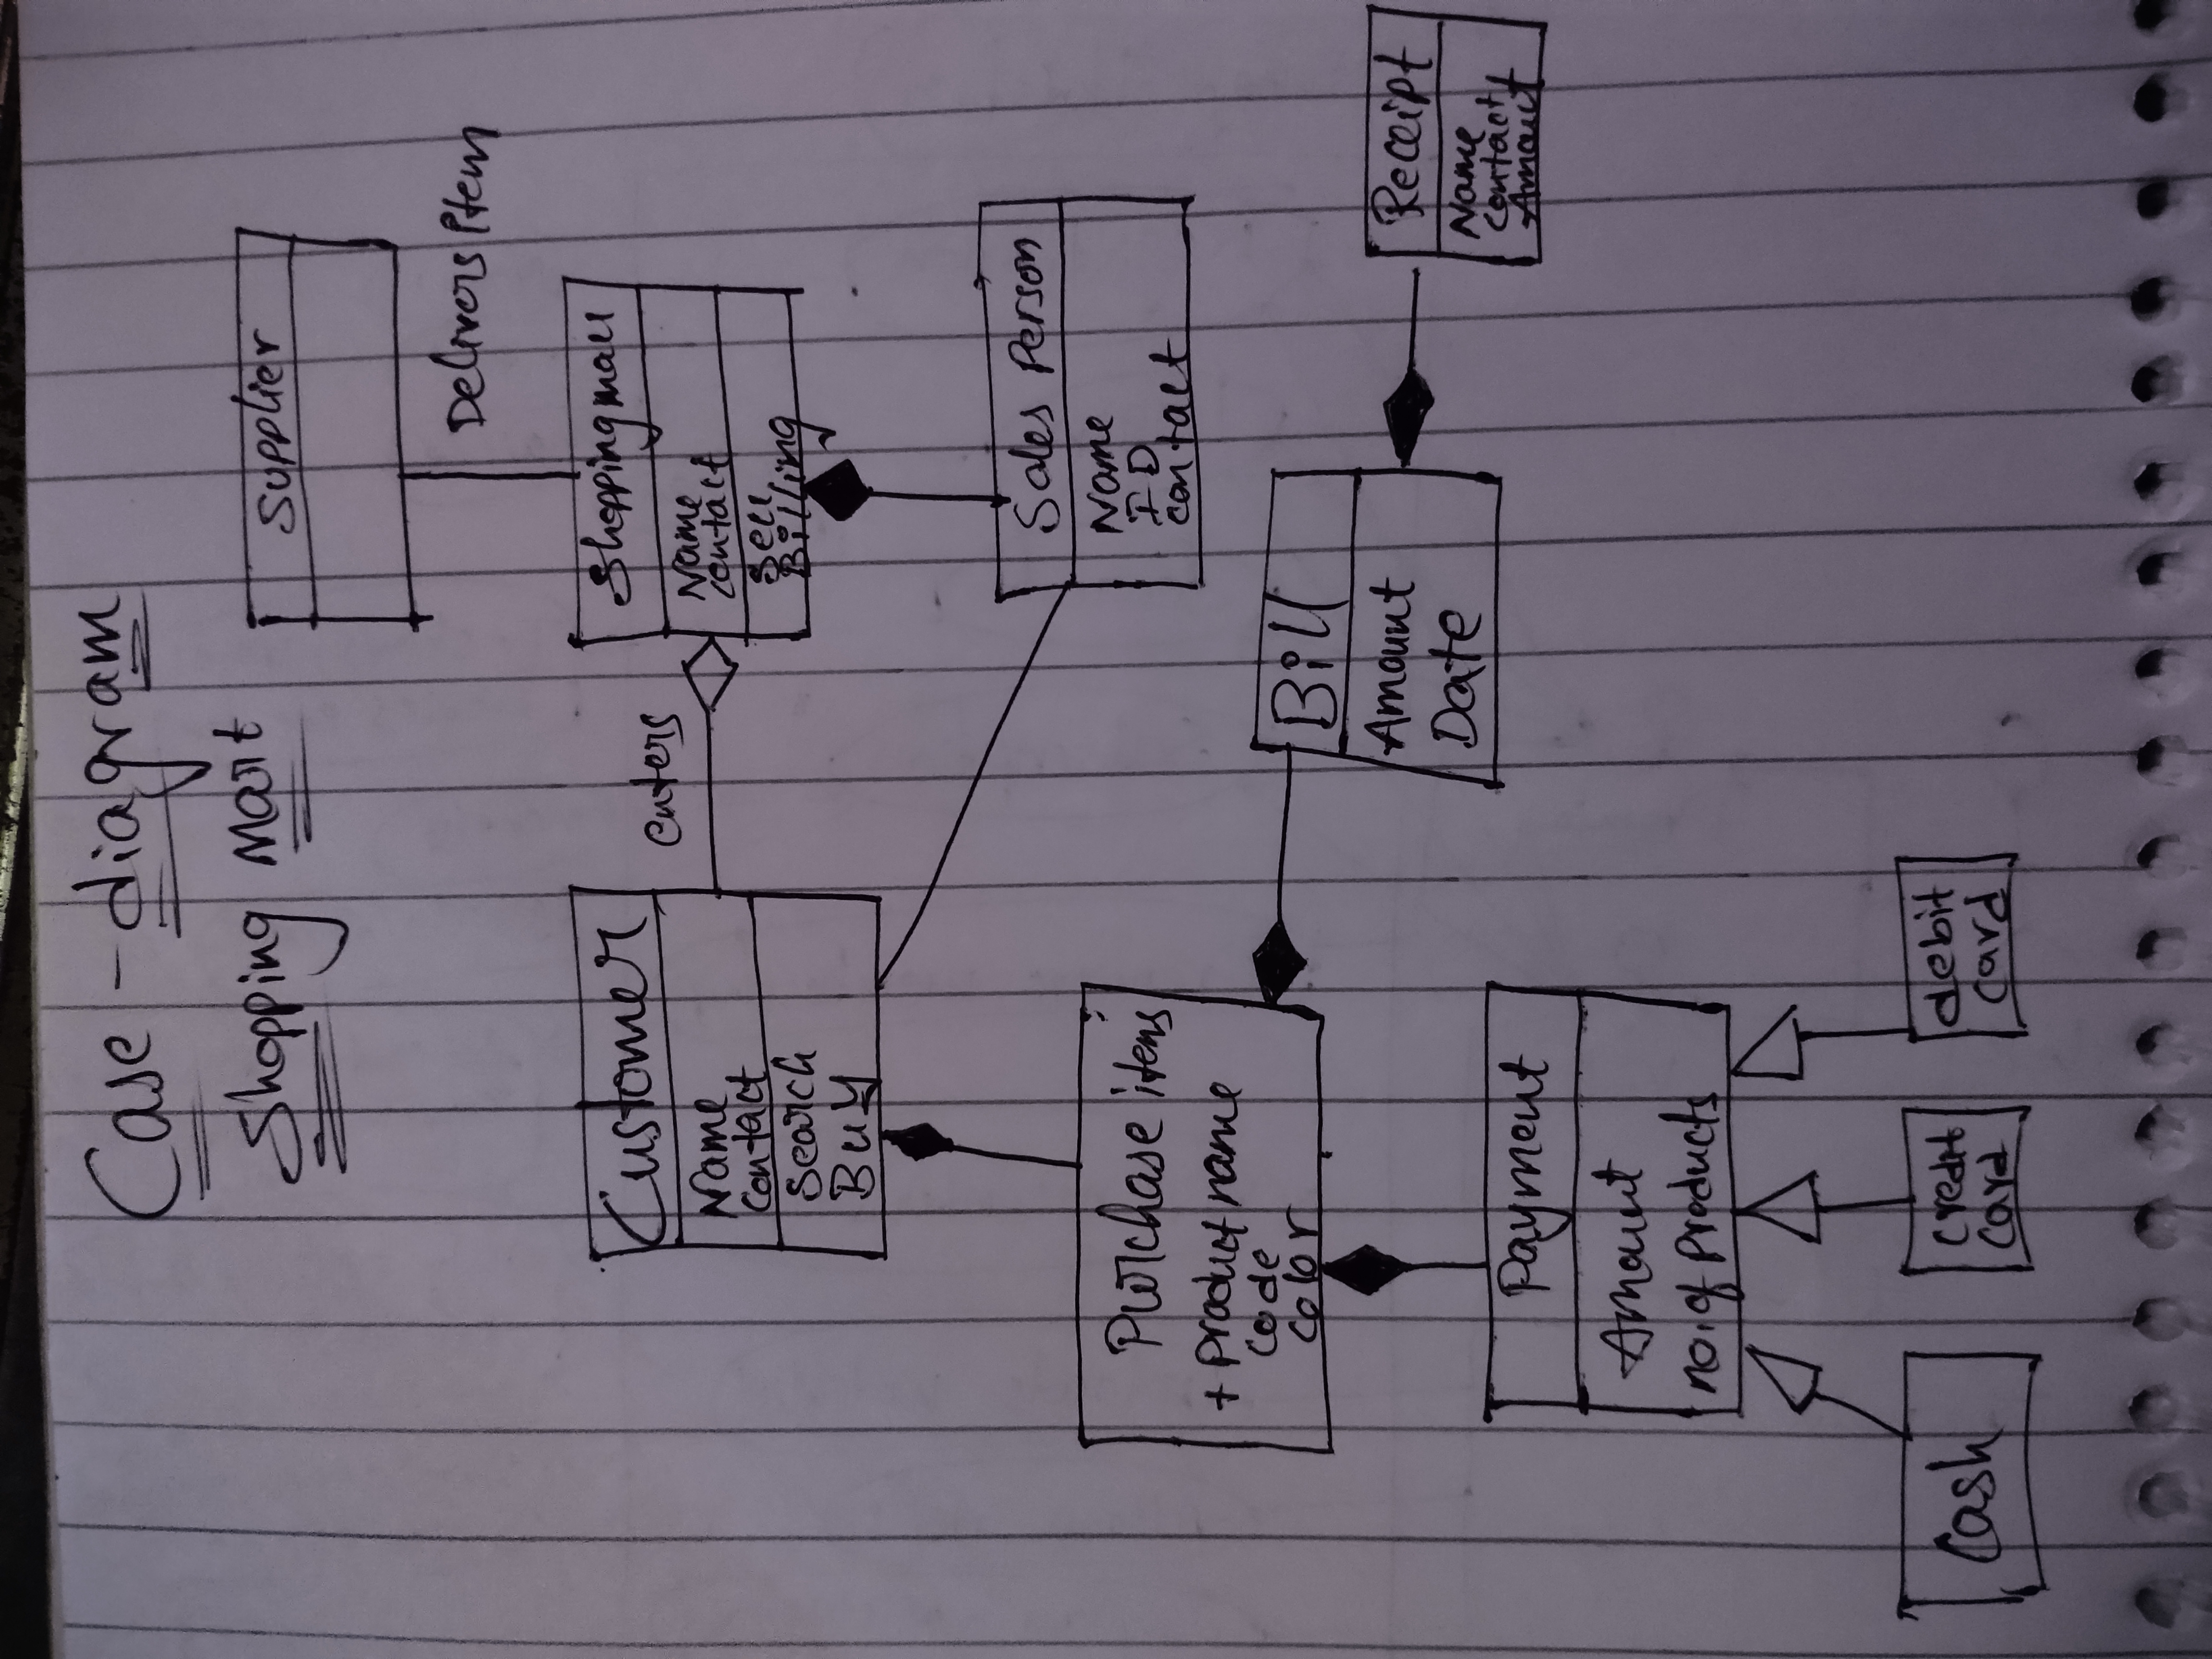 Case - diagram
Shopping Mart
Supplier
Delivers item
Customer
Name
contact
Search
Buy
enters
Shopping mall
Name
contact
Sell
Billing
Sales Person
Name
ID
contact
Purchase items
+ Product name
code
color
Bill
Amount
Date
Receipt
Name
contact
Amount
Payment
Amount
no. of Products
Cash
credit
card
debit
card